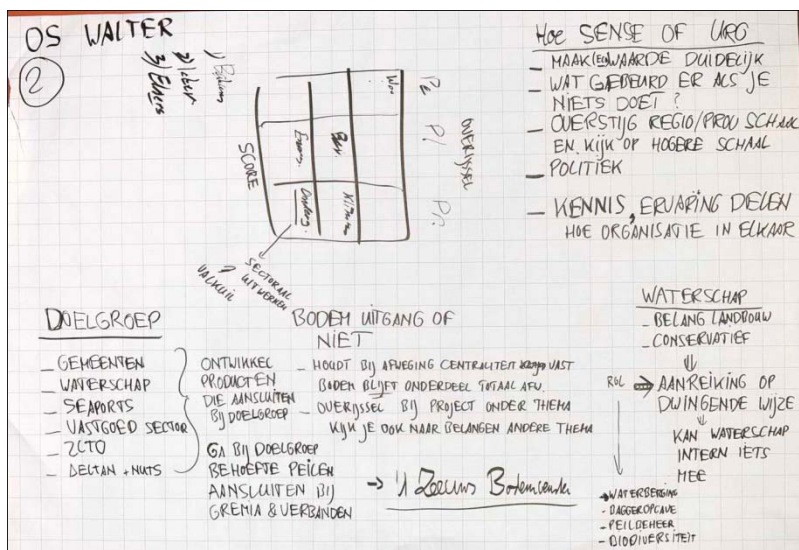 OS WALTER
2
1)
2)
3)
OVERIJSSEL
SCORE
SECTORAAL
UITWERKEN
?
VALKUIL
HOE SENSE OF URG
- MAAK WAARDE DUIDELIJK
- WAT GEBEURD ER ALS JE
NIETS DOET?
- OVERSTIJG REGIO/PROV SCHAAL
EN KIJK OP HOGERE SCHAAL
- POLITIEK
- KENNIS, ERVARING DELEN
HOE ORGANISATIE IN ELKAAR
DOELGROEP
- GEMEENTEN
- WATERSCHAP
- SEAPORTS
- VASTGOED SECTOR
- ZLTO
- DELTAN + NUTS
ONTWIKKEL
PRODUCTEN
DIE AANSLUITEN
BIJ DOELGROEP
GA BIJ DOELGROEP
BEHOEFTE PEILEN
AANSLUITEN BIJ
GREMIA & VERBANDEN
BODEM UITGANG OF
NIET
- HOUDT BIJ AFWEGING CENTRALITEIT VAST
BODEM BLIJFT ONDERDEEL TOTAAL AFW.
- OVERIJSSEL BIJ PROJECT ONDER THEMA
KIJK JE OOK NAAR BELANGEN ANDERE THEMA
→ '1 Zeeuws
WATERSCHAP
- BELANG LANDBOUW
- CONSERVATIEF
ROL ⇒ AANREIKING OP
DWINGENDE WIJZE
KAN WATERSCHAP
INTERN IETS
MEE
- WATERBERGING
- BAGGEROPGAVE
- PEILBEHEER
- BIODIVERSITEIT